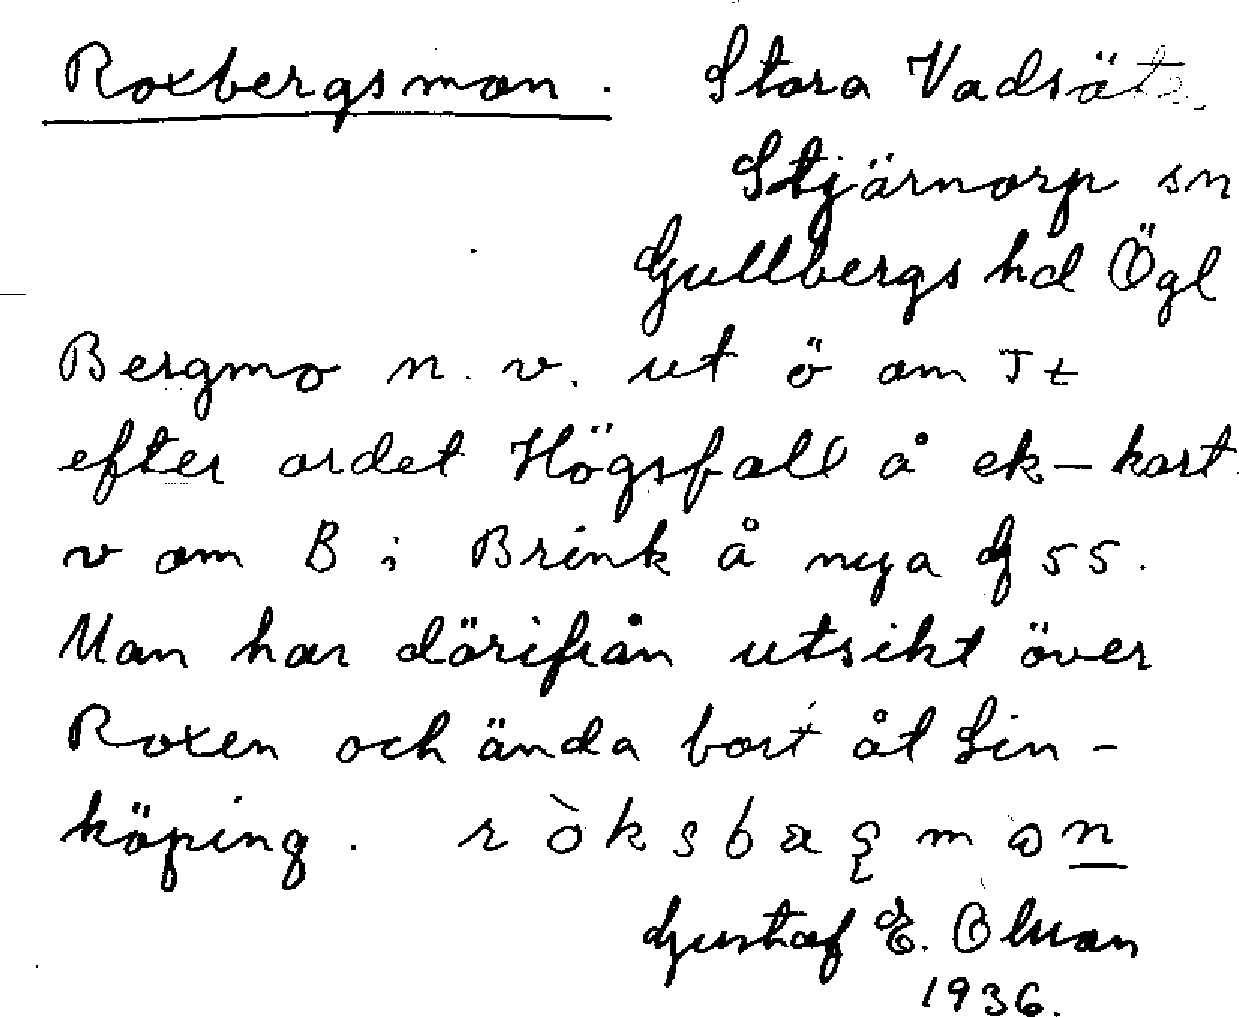 Roxbergsmon. Stora Vadsäte
Stjärnorp sn
Gullbergs hd Ögl
Bergmo n. v. ut ö om Tt
efter ordet Högsfall å ek-kart.
v om B i Brink å nya G 55.
Man har därifrån utsikt över
Roxen och ända bort åt Lin-
köping. ròksbaꞔmɷn
Gustaf E. Olsson
1936.